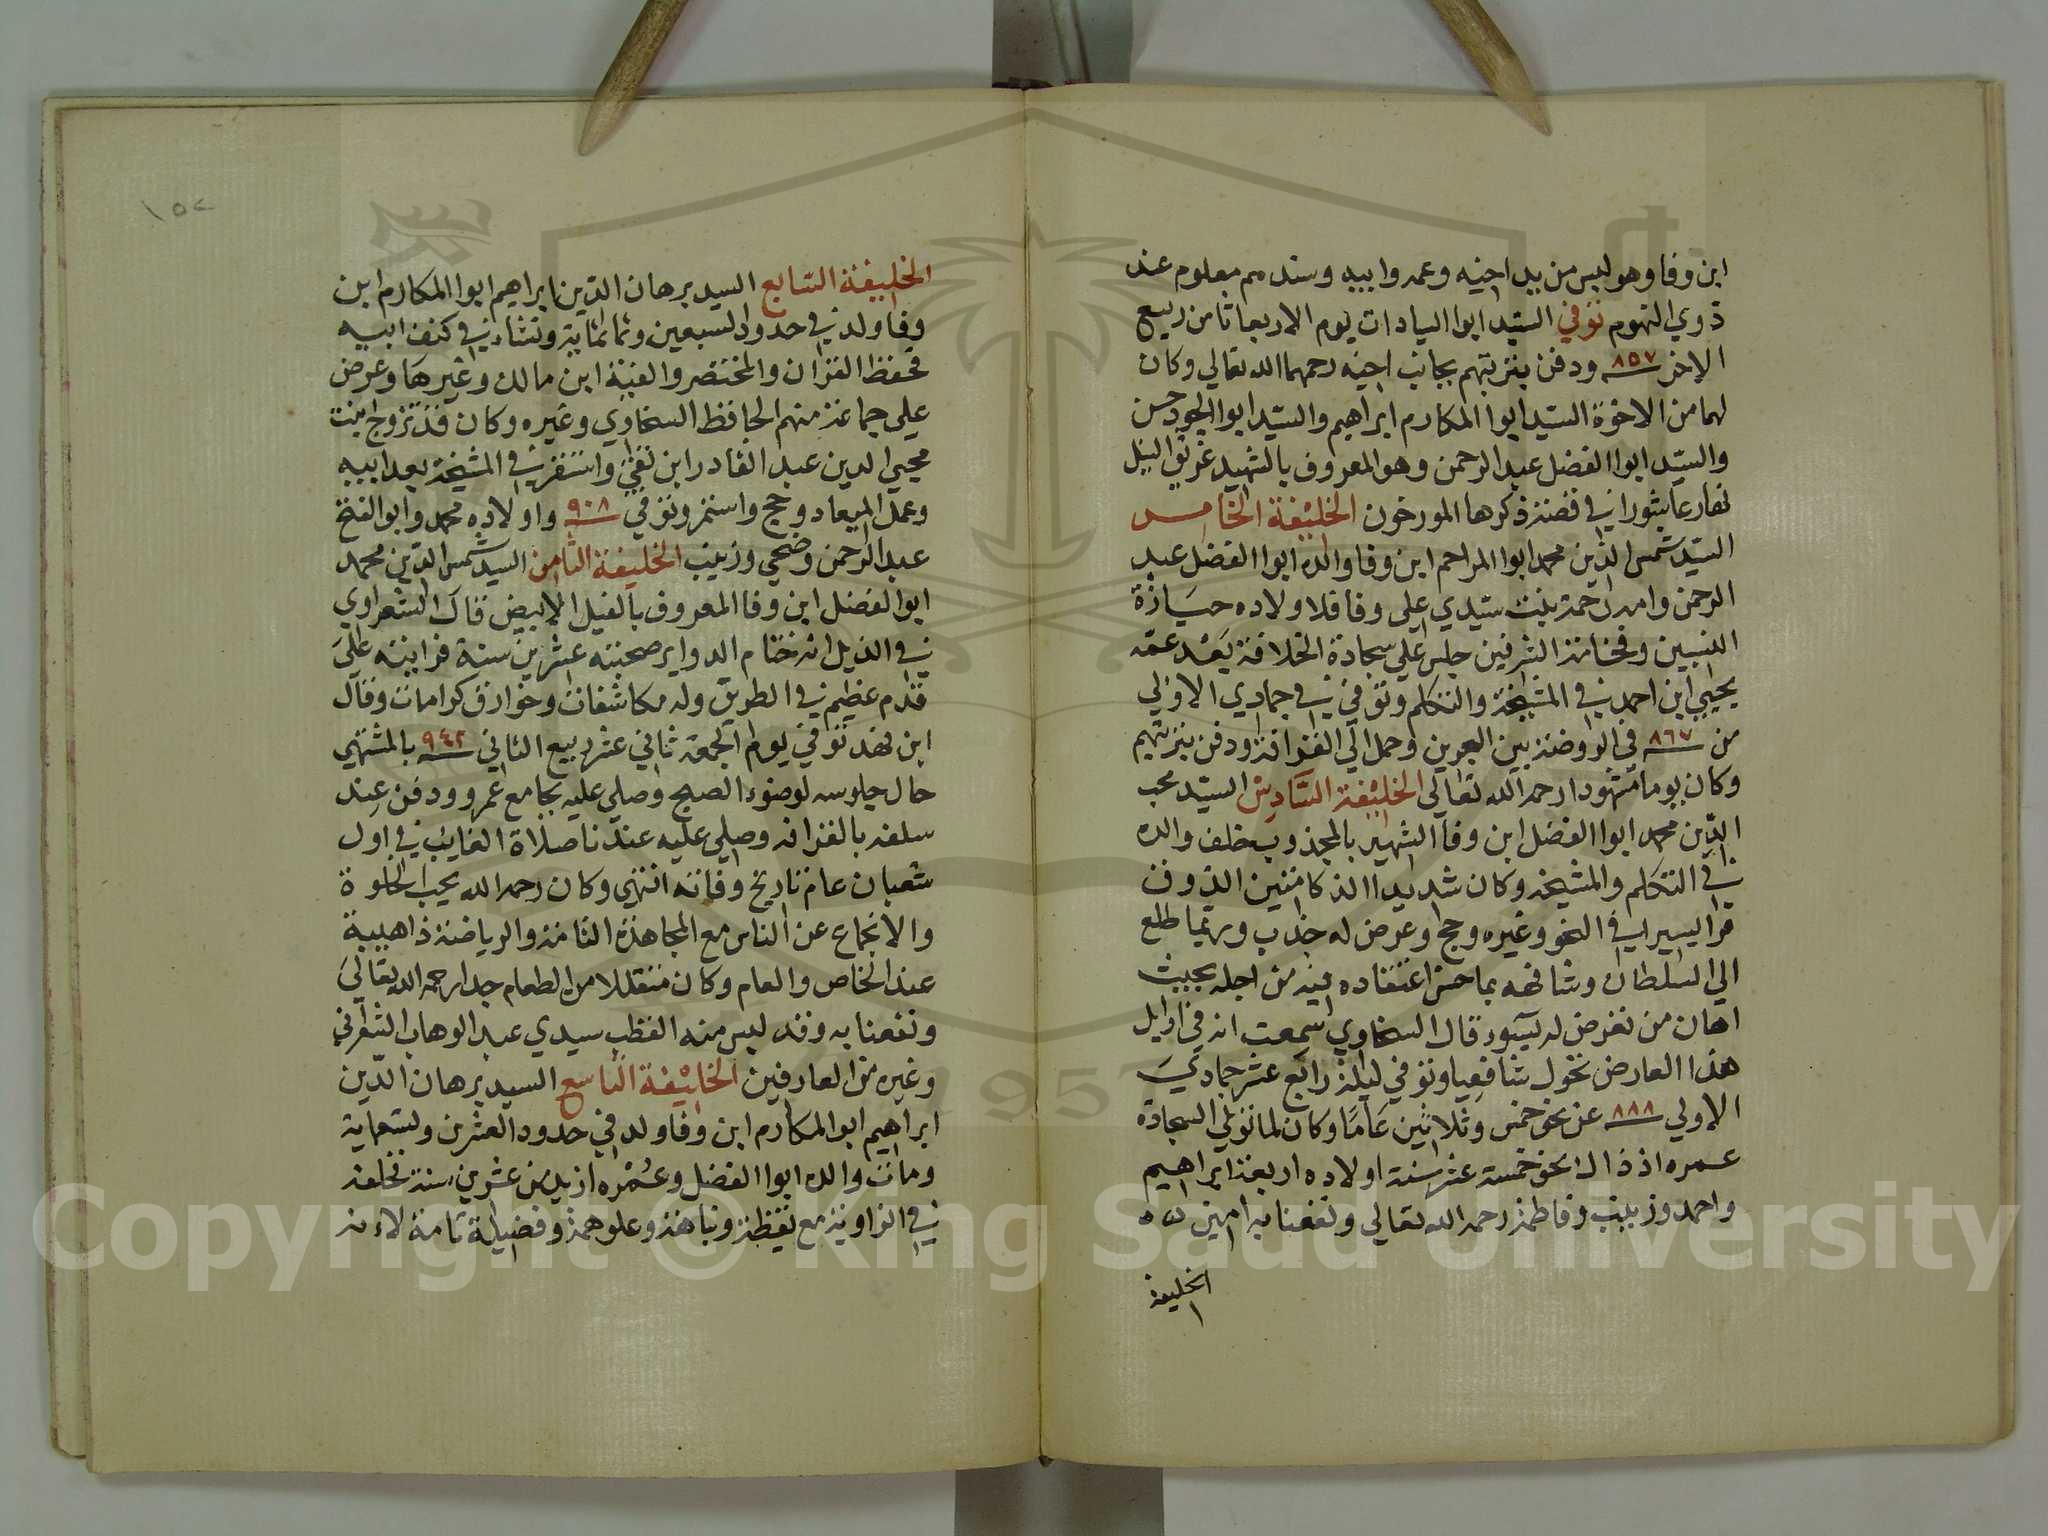 ابن وفا وهو لبس من يد اخيه وعمه وابيه وسندهم معلوم عند
ذوي الفهوم توفي السيد ابوا السيادات يوم الاربعا ثامن ربيع
الاخر سنه ٨٥٧ ودفن بتربتهم بجانب اخيه رحمهما الله تعالي وكان
لهما من الاخوة السيد ابوا المكارم ابراهيم والسيد ابوا الجود حسن
والسيد ابوا الفضل عبد الرحمن وهو المعروف بالشهيد غريق النيل
نهار عاشورا في قصة ذكرها المورخون الخليفة الخامس
السيد شمس الدين محمد ابوا المراحم ابن وفا والده ابوا الفضل عبد
الرحمن وامه رحمة بنت سيدي علي وفا فلاولاده حيازة
النسبين وفخامة الشرفين جلس علي سجادة الخلافة بعد عمه
يحيي ابن احمد في المشيخة والتكلم وتوفي في جمادي الاولي
من سنه ٨٦٧ في الروضة بين البحرين وحمل الي القرافة ودفن بتربتهم
وكان يوما مشهودا رحمه الله تعالي الخليفة السادس السيد محب
الدين محمد ابوا الفضل ابن وفا الشهير بالمجذوب خلف والده
في التكلم والمشيخه وكان شديد الذكا متين الذوق
قرا اليسير في النحو وغيره وحج وعرض له جذب وربما طلع
الي السلطان وشافهه بما حسن اعتقاده فيه من اجله بحيث
اهان من تعرض له بسوء قال السخاوي سمعت انه في اوايل
هذا العارض تحول شافعيا وتوفي ليلة رابع عشر جمادي
الاولي سنه ٨٨٨ عن نحو خمس وثلاثين عاما وكان لما تولي السجادة
عمره اذ ذاك نحو خمسة عشر سنة اولاده اربعة ابراهيم
واحمد وزينب وفاطمة رحمه الله تعالي ونفعنا به امين
الخليفة
١٥٢
الخليفة السابع السيد برهان الدين ابراهيم ابوا المكارم ابن
وفا ولد في حدود السبعين وثمانماية ونشاء في كنف ابيه
فحفظ القران والمختصر والفية ابن مالك وغيرها وعرض
علي جماعة منهم الحافظ السخاوي وغيره وكان قد تزوج ابنت
محيي الدين عبد القادر ابن تقي واستقر في المشيخة بعد ابيه
وعمل الميعاد وحج واستمر وتوفي سنه ٩٠٨ واولاده محمد وابو الفتح
عبد الرحمن وضحي وزينب الخليفة الثامن السيد شمس الدين محمد
ابوا الفضل ابن وفا المعروف بالفيل الابيض قال الشعراوي
في الذيل انه ختام الدواير صحبته عشرين سنة فرايته علي
قدم عظيم في الطريق وله مكاشفات وخوارق كرامات وقال
ابن فهد توفي يوم الجمعة ثاني عشر ربيع الثاني سنه ٩٤٢ بالمشتهي
حال جلوسه لوضوء الصبح وصلي عليه بجامع عمرو ودفن عند
سلفه بالقرافه وصلي عليه عندنا صلاة الغايب في اول
شعبان عام تاريخ وفاته انتهي وكان رحمه الله يحب الخلوة
والانجماع عن الناس مع المجاهدة التامة والرياضة ذا هيبة
عند الخاص والعام وكان متقللا من الطعام جدا رحمه الله تعالي
ونفعنا به وقد لبس منه القطب سيدي عبد الوهاب الشعراني
وغيره من العارفين الخليفة التاسع السيد برهان الدين
ابراهيم ابوا المكارم ابن وفا ولد في حدود العشرين وتسعماية
ومات والده ابوا الفضل وعمره ازيد من عشرين سنة فخلفه
في الزاوية مع تيقظة ونباهة وعلوهمة وفضيلة تامة لانه
Copyright © King Saud University
1957